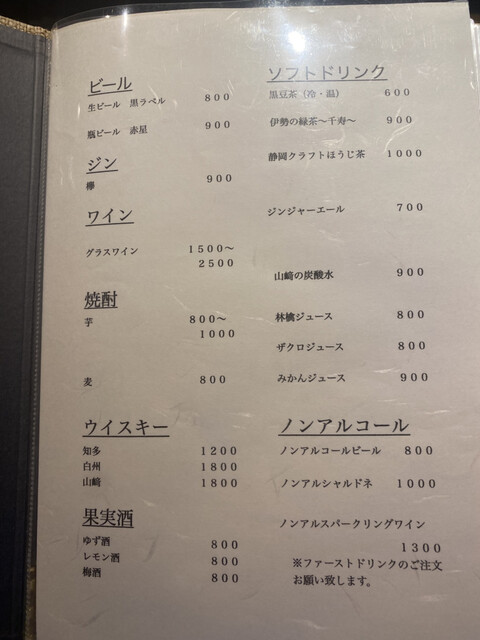 ビール
生ビール 黒ラベル 800
瓶ビール 赤星 900
ジン
欅 900
ワイン
グラスワイン 1500〜
2500
焼酎
芋 800〜
1000
麦 800
ウイスキー
知多 1200
白州 1800
山﨑 1800
果実酒
ゆず酒 800
レモン酒 800
梅酒 800
ソフトドリンク
黒豆茶（冷・温） 600
伊勢の緑茶〜千寿〜 900
静岡クラフトほうじ茶 1000
ジンジャーエール 700
山﨑の炭酸水 900
林檎ジュース 800
ザクロジュース 800
みかんジュース 900
ノンアルコール
ノンアルコールビール 800
ノンアルシャルドネ 1000
ノンアルスパークリングワイン
1300
※ファーストドリンクのご注文
お願い致します。